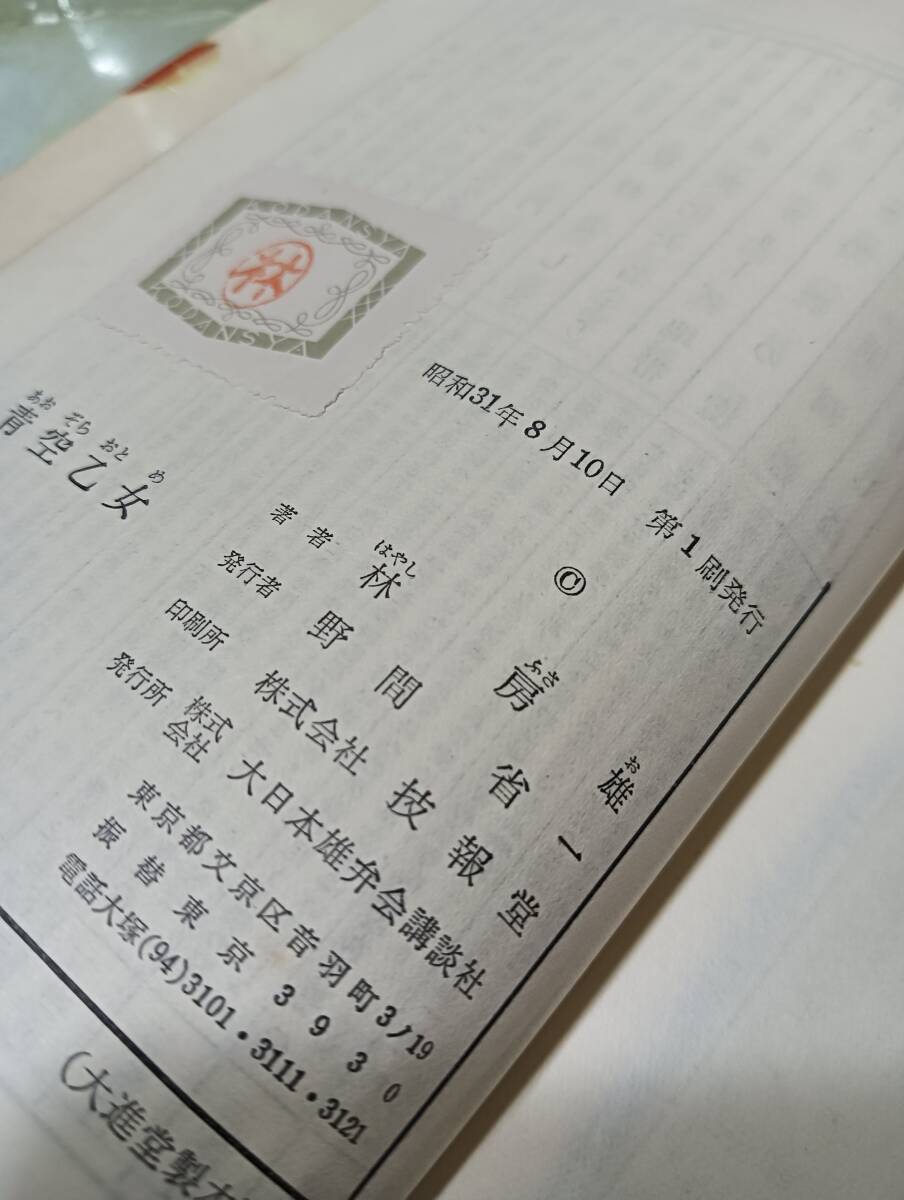 KODANSYA
林
KODANSYA
昭和31年8月10日 第1刷発行
©
あおぞらおとめ
青空乙女
はやし ふさ お
著者 林 房 雄
発行者 野間省一
印刷所 株式会社 技報堂
発行所 株式会社 大日本雄弁会講談社
東京都文京区音羽町3ノ19
振替東京3930
電話大塚(94)3101・3111・3121
(大進堂製本